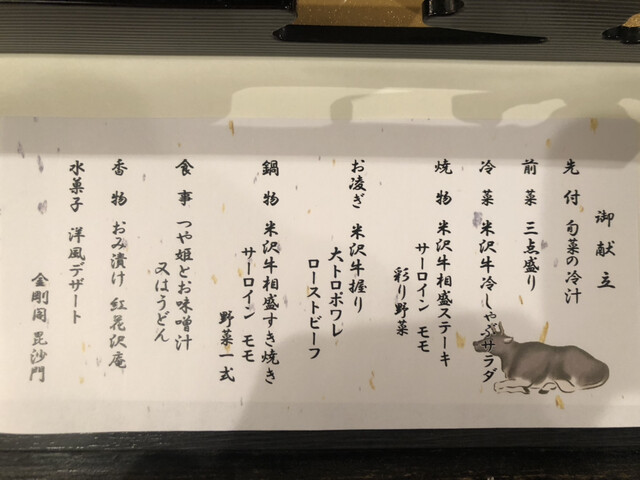 御献立
先付 旬菜の冷汁
前菜 三点盛り
冷菜 米沢牛冷しゃぶサラダ
焼物 米沢牛相盛ステーキ
サーロイン モモ
彩り野菜
お凌ぎ 米沢牛握り
大トロポワレ
ローストビーフ
鍋物 米沢牛相盛すき焼き
サーロイン モモ
野菜一式
食事 つや姫とお味噌汁
又はうどん
香物 おみ漬け 紅花沢庵
水菓子 洋風デザート
金剛閣 毘沙門